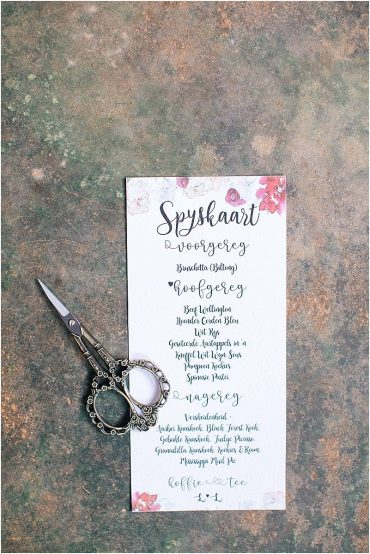 Spyskaart
voorgereg
Bruschetta (Biltong)
hoofgereg
Beef Wellington
Hoender Cordon Bleu
Wit Rys
Geroosterde Aartappels in 'n
Knoffel Wit Wyn Sous
Pampoen Koekies
Spinasie Pastei
nagereg
Verskeidenheid -
Aarbei Kaaskoek, Black Forest Koek,
Gebakte Kaaskoek, Fudge Picasso,
Granadilla Kaaskoek, Koekies & Room,
Mississippi Mud Pie
koffie tee
L L